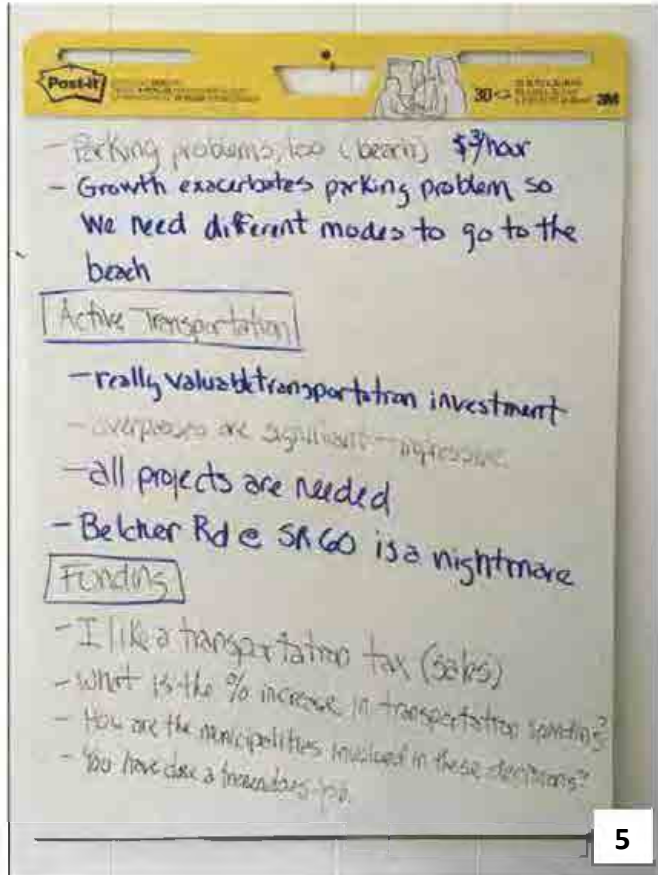 Post-it
30
3M
- Parking problems, too (beach) $3/hour
- Growth exacerbates parking problem so
we need different modes to go to the
beach
Active Transportation
- really valuable transportation investment
- overpasses are significant
- all projects are needed
- Belcher Rd @ SR 60 is a nightmare
Funding
- I like a transportation tax (sales)
- What is the % increase in transportation spending?
- How are the municipalities involved in these decisions?
- You have done a tremendous job.
5